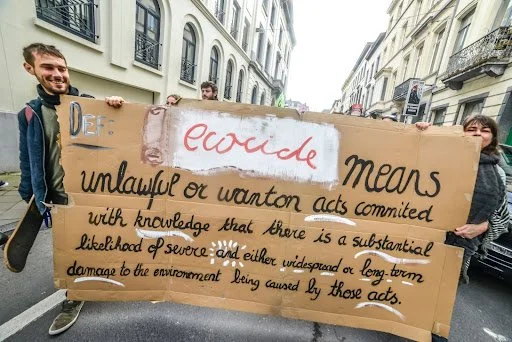 DEF: ecocide means
unlawful or wanton acts commited
with knowledge that there is a substantial
likelihood of severe and either widespread or long-term
damage to the environement being caused by those acts.